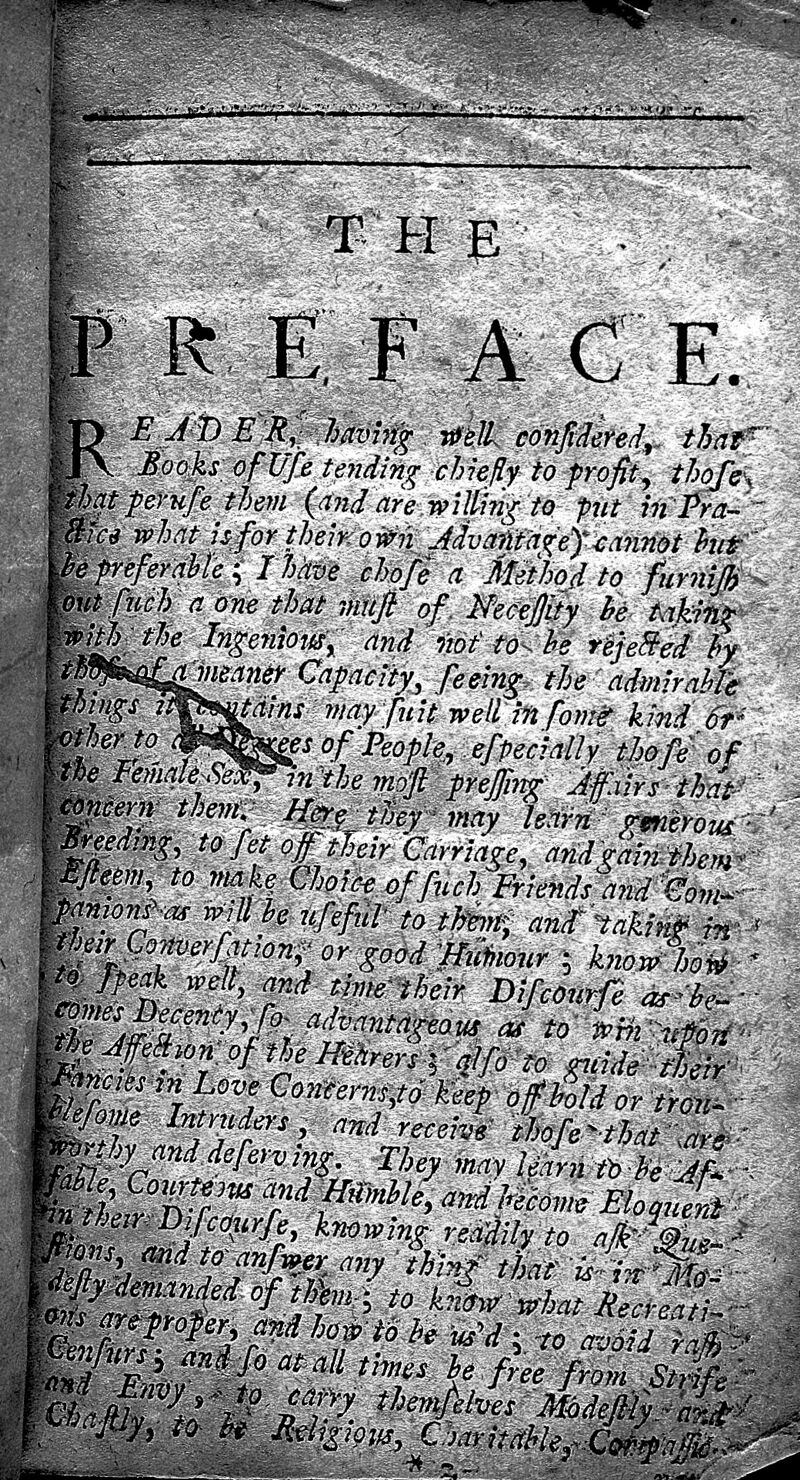 THE
PREFACE.
READER, having well conſidered, that
Books of Uſe tending chiefly to profit, thoſe
that peruſe them (and are willing to put in Pra-
ctice what is for their own Advantage) cannot but
be preferable; I have choſe a Method to furniſh
out ſuch a one that muſt of Neceſſity be taking
with the Ingenious, and not to be rejected by
thoſe of a meaner Capacity, ſeeing the admirable
things it contains may ſuit well in ſome kind or
other to all Degrees of People, eſpecially thoſe of
the Female Sex, in the moſt preſſing Affairs that
concern them. Here they may learn generous
Breeding, to ſet off their Carriage, and gain them
Eſteem, to make Choice of ſuch Friends and Com-
panions as will be uſeful to them, and taking in
their Converſation, or good Humour; know how
to ſpeak well, and time their Diſcourſe as be-
comes Decency, ſo advantageous as to win upon
the Affection of the Hearers; alſo to guide their
Fancies in Love Concerns, to keep off bold or trou-
bleſome Intruders, and receive thoſe that are
worthy and deſerving. They may learn to be Af-
fable, Courteous and Humble, and become Eloquent
in their Diſcourſe, knowing readily to aſk Que-
ſtions, and to anſwer any thing that is in Mo-
deſty demanded of them; to know what Recreati-
ons are proper, and how to be us'd; to avoid raſh
Cenſurs; and ſo at all times be free from Strife
and Envy, to carry themſelves Modeſtly and
Chaſtly, to be Religious, Charitable, Compaſſio-
* 2